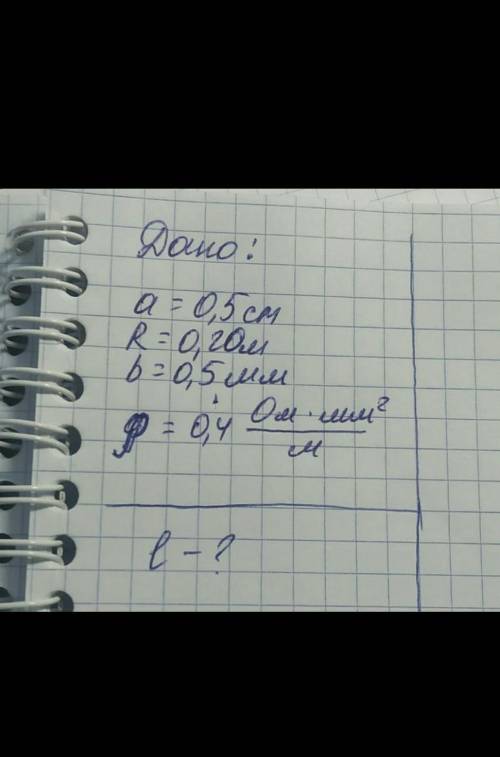 Дано:
a = 0,5 cm
R = 0,2 Ом
b = 0,5 мм
ρ = 0,4 Ом · мм² / м
l - ?